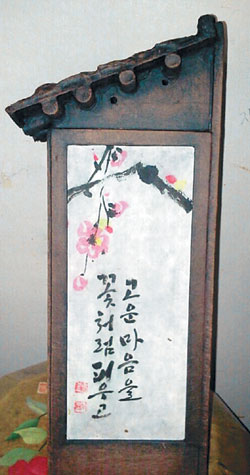 고운마음을
꽃처럼피우고